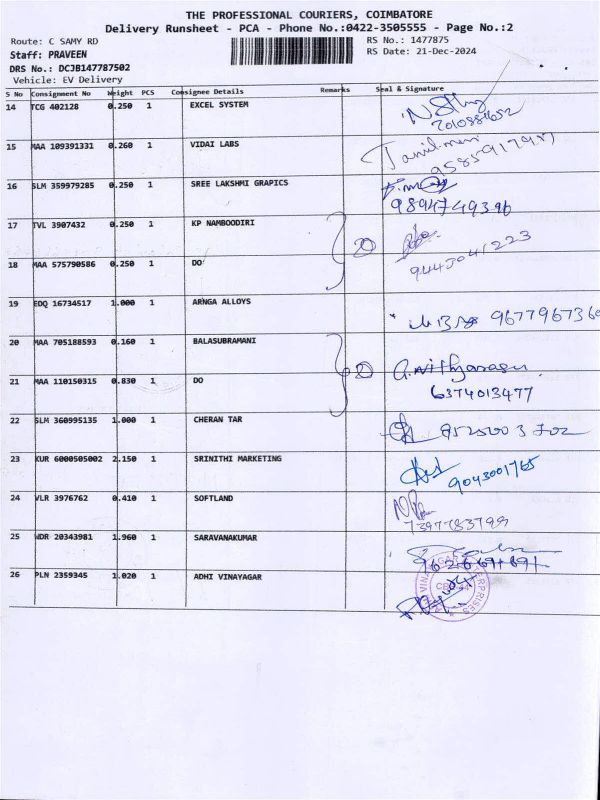 THE PROFESSIONAL COURIERS, COIMBATORE
Delivery Runsheet - PCA - Phone No.:0422-3505555 - Page No.:2
Route: C SAMY RD RS No.: 1477875
Staff: PRAVEEN RS Date: 21-Dec-2024
DRS No.: DCJB147787502
Vehicle: EV Delivery
S No Consignment No Weight PCS Consignee Details Remarks Seal & Signature
14 TCG 402128 0.250 1 EXCEL SYSTEM
15 MAA 109391331 0.260 1 VIDAI LABS
Tamilmani
9585917917
16 SLM 359979285 0.250 1 SREE LAKSHMI GRAPICS
9894749396
17 TVL 3907432 0.250 1 KP NAMBOODIRI
18 MAA 575790586 0.250 1 DO
9443041223
19 EDQ 16734517 1.000 1 ARNGA ALLOYS
20 MAA 705188593 0.160 1 BALASUBRAMANI
21 MAA 110150315 0.830 1 DO
6374013477
22 SLM 360995135 1.000 1 CHERAN TAR
23 KUR 6000505002 2.150 1 SRINITHI MARKETING
9043001765
24 VLR 3976762 0.410 1 SOFTLAND
7397783799
25 NDR 20343981 1.960 1 SARAVANAKUMAR
26 PLN 2359345 1.020 1 ADHI VINAYAGAR